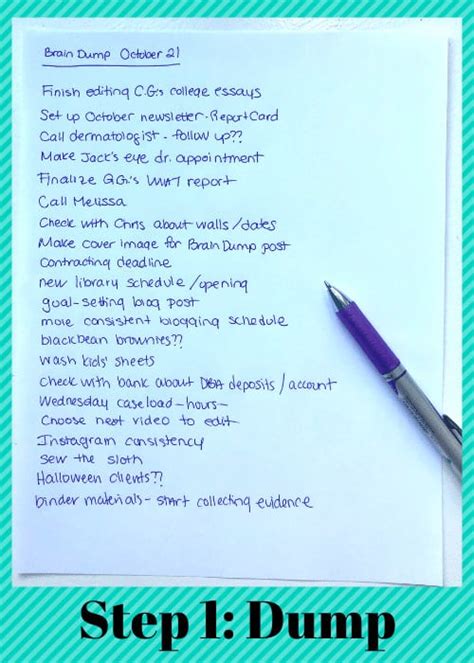 Brain Dump October 21
Finish editing C.G.'s college essays
Set up October newsletter-Report Card
Call dermatologist - follow up??
Make Jack's eye dr. appointment
Finalize G.G.'s WIAT report
Call Melissa
Check with Chris about walls/dates
Make cover image for Brain Dump post
Contracting deadline
new library schedule/opening
goal-setting blog post
more consistent blogging schedule
blackbean brownies??
wash kids' sheets
check with bank about DBA deposits/account
Wednesday caseload-hours-
Choose next video to edit
Instagram consistency
sew the sloth
Halloween clients??
binder materials- start collecting evidence
Step 1: Dump